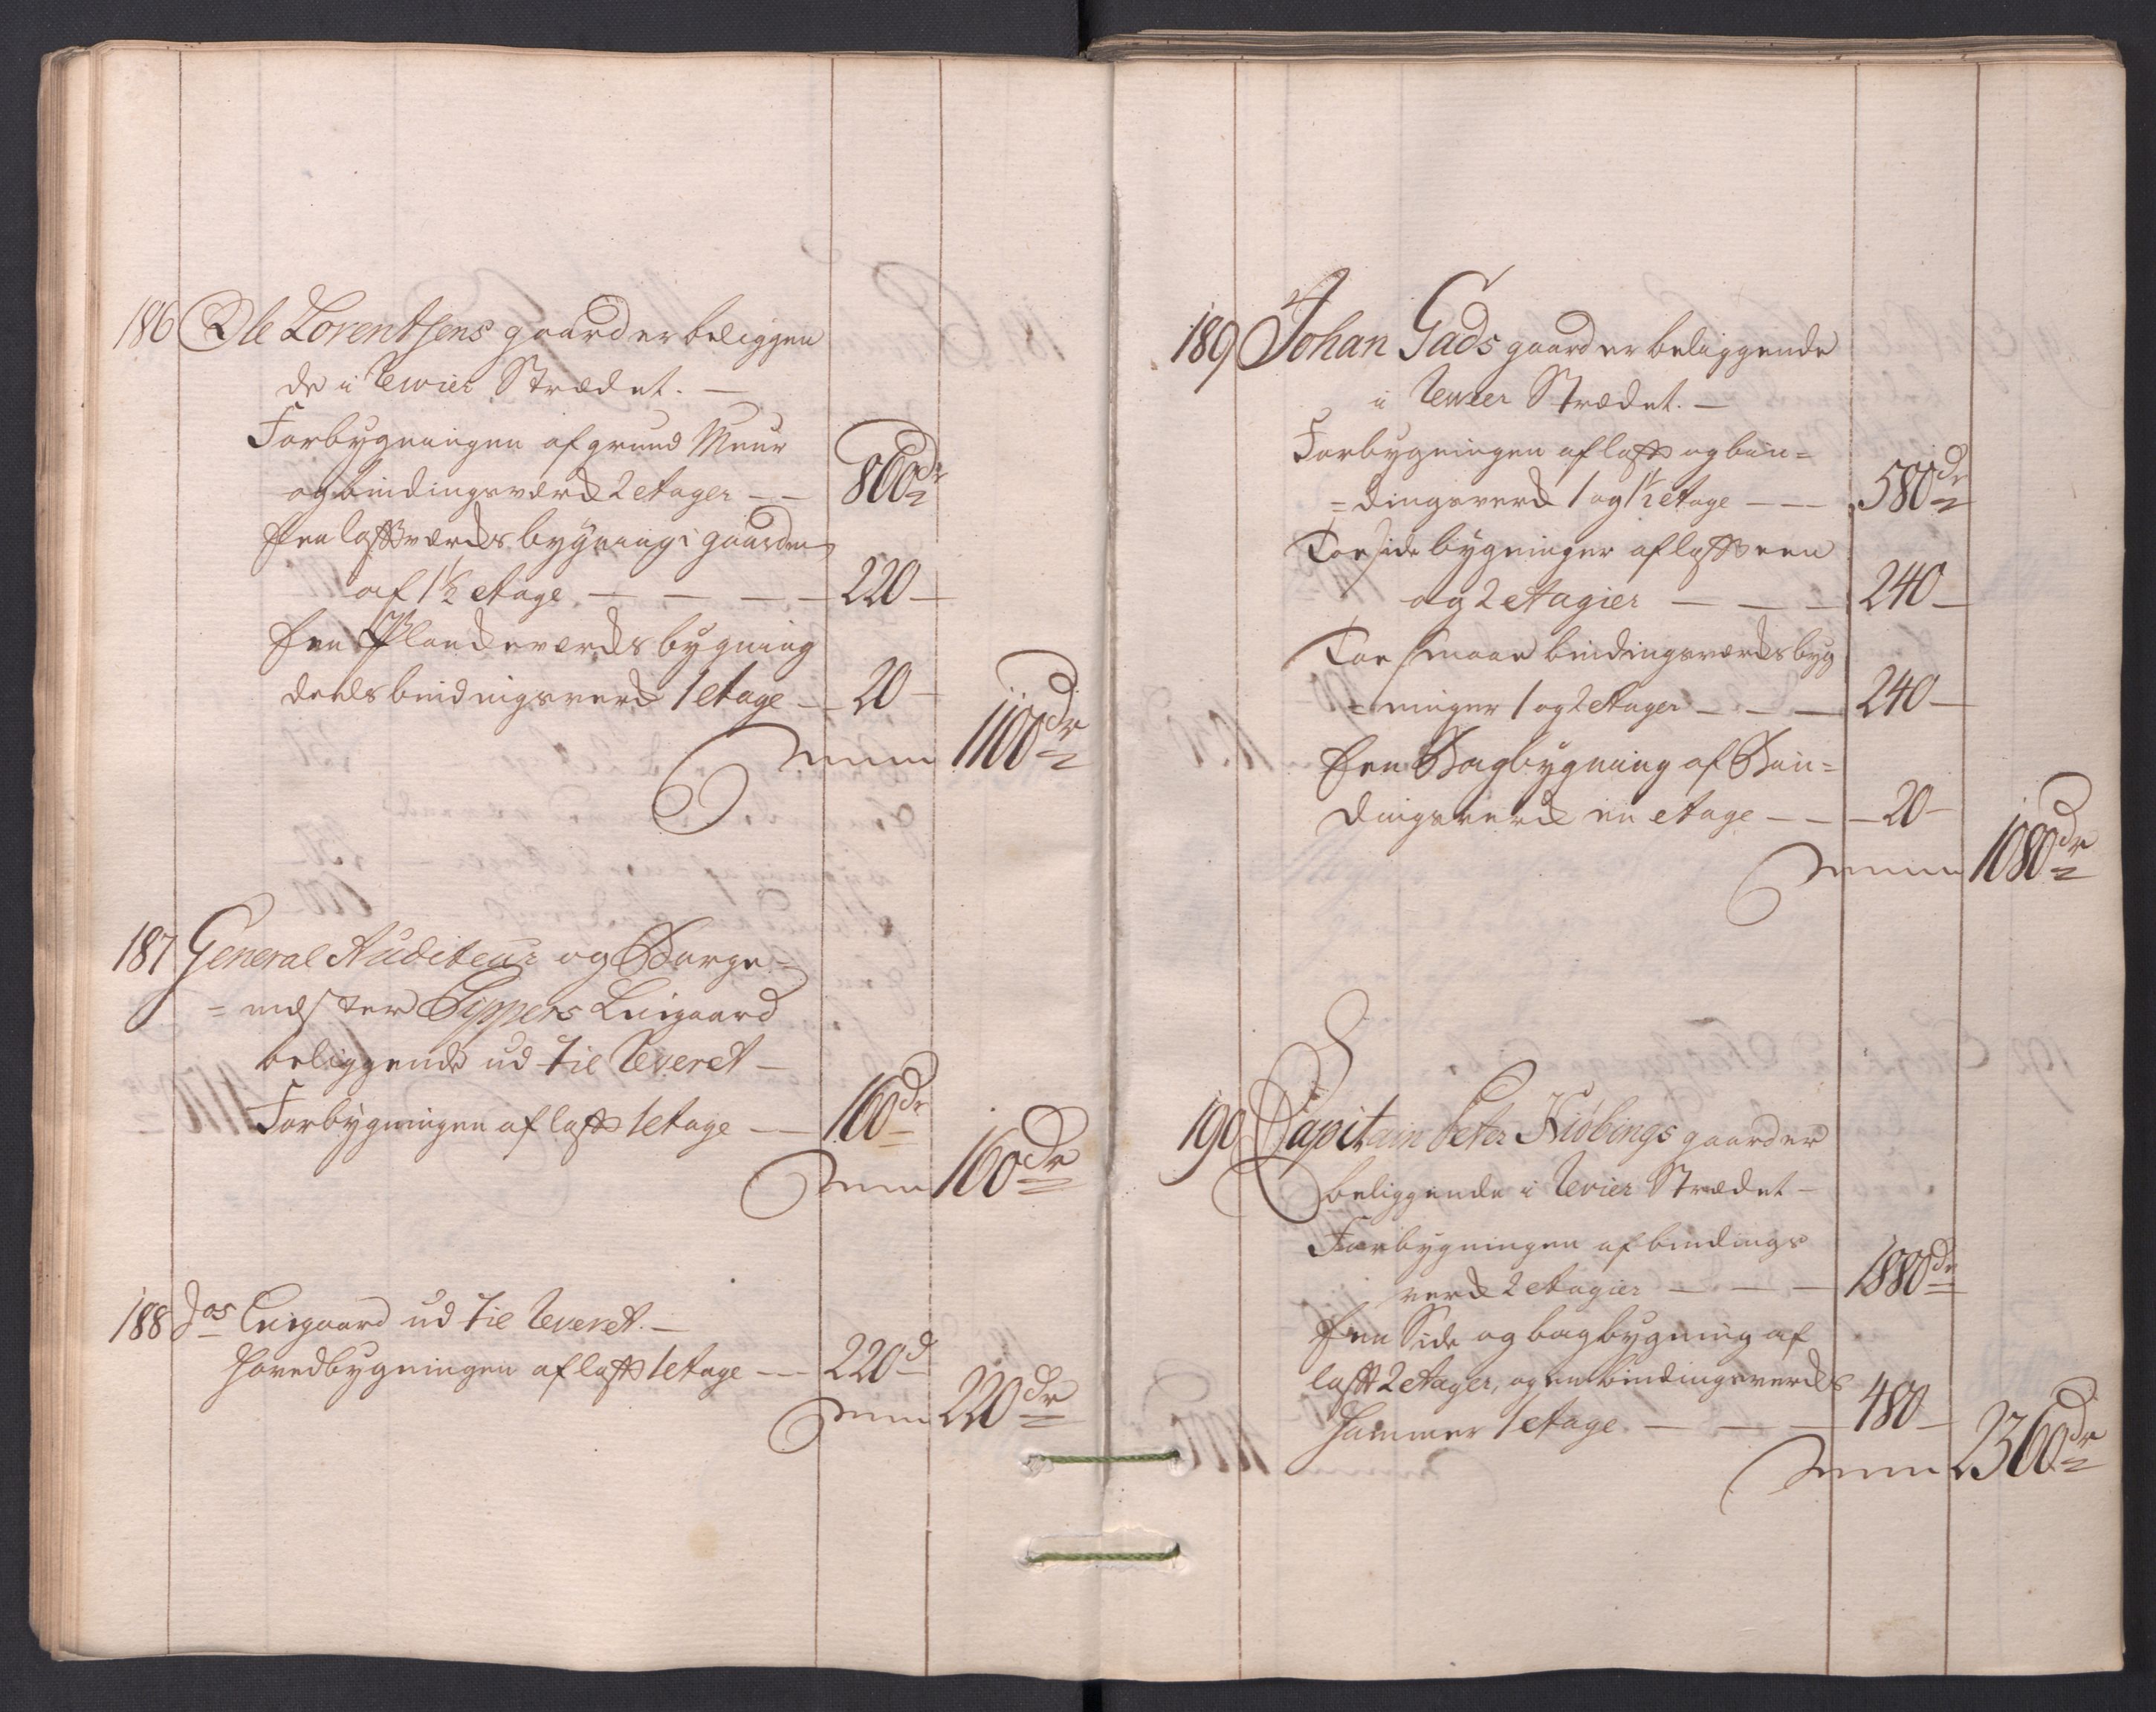 186 Ole Lorentsens gaard er beliggen
de i Revier Strædet. —
Forbygningen af grund Muur
og bindingsværck 2 etager — — 860 dr
Een lafftværcks bygning i gaarden
af 1½ etage — — — — 220 —
Een Planckeværcks bygning
deels bindingsverck 1 etage — — 20 —
Summa 1100 dr
187 General Auditeur og Borge=
=mester Sippers Leigaard
beliggende ud til Reveret —
Forbygningen af lafft 1 etage — — 160 dr
Summa 160 dr
188 Dos Leigaard ud til Reveret. —
Hovedbygningen af lafft 1 etage — — 220 d
Summa 220 dr
189 Johan Gads gaard er beliggende
i Revier Strædet. —
Forbygningen af lafft og bin=
=dingsverck 1 og 1½ etage — — — 580 dr
Toe side bygninger af lafft een
og 2 etagier — — — 240 —
Toe smaae bindingsværcks byg
=ninger 1 og 2 etager — — — 240 —
Een Bagbygning af Bin=
dingsverck en etage — — — 20 —
Summa 1080 dr
190 Capitain Peter Niøbings gaard er
beliggende i Revier Strædet —
Forbygningen af bindings
verck 2 etagier — — — 1880 dr
Een Side og bagbygning af
lafft 2 etager, og en bindingsvercks
Hammer 1 etage. — — — 480 —
Summa 2360 dr